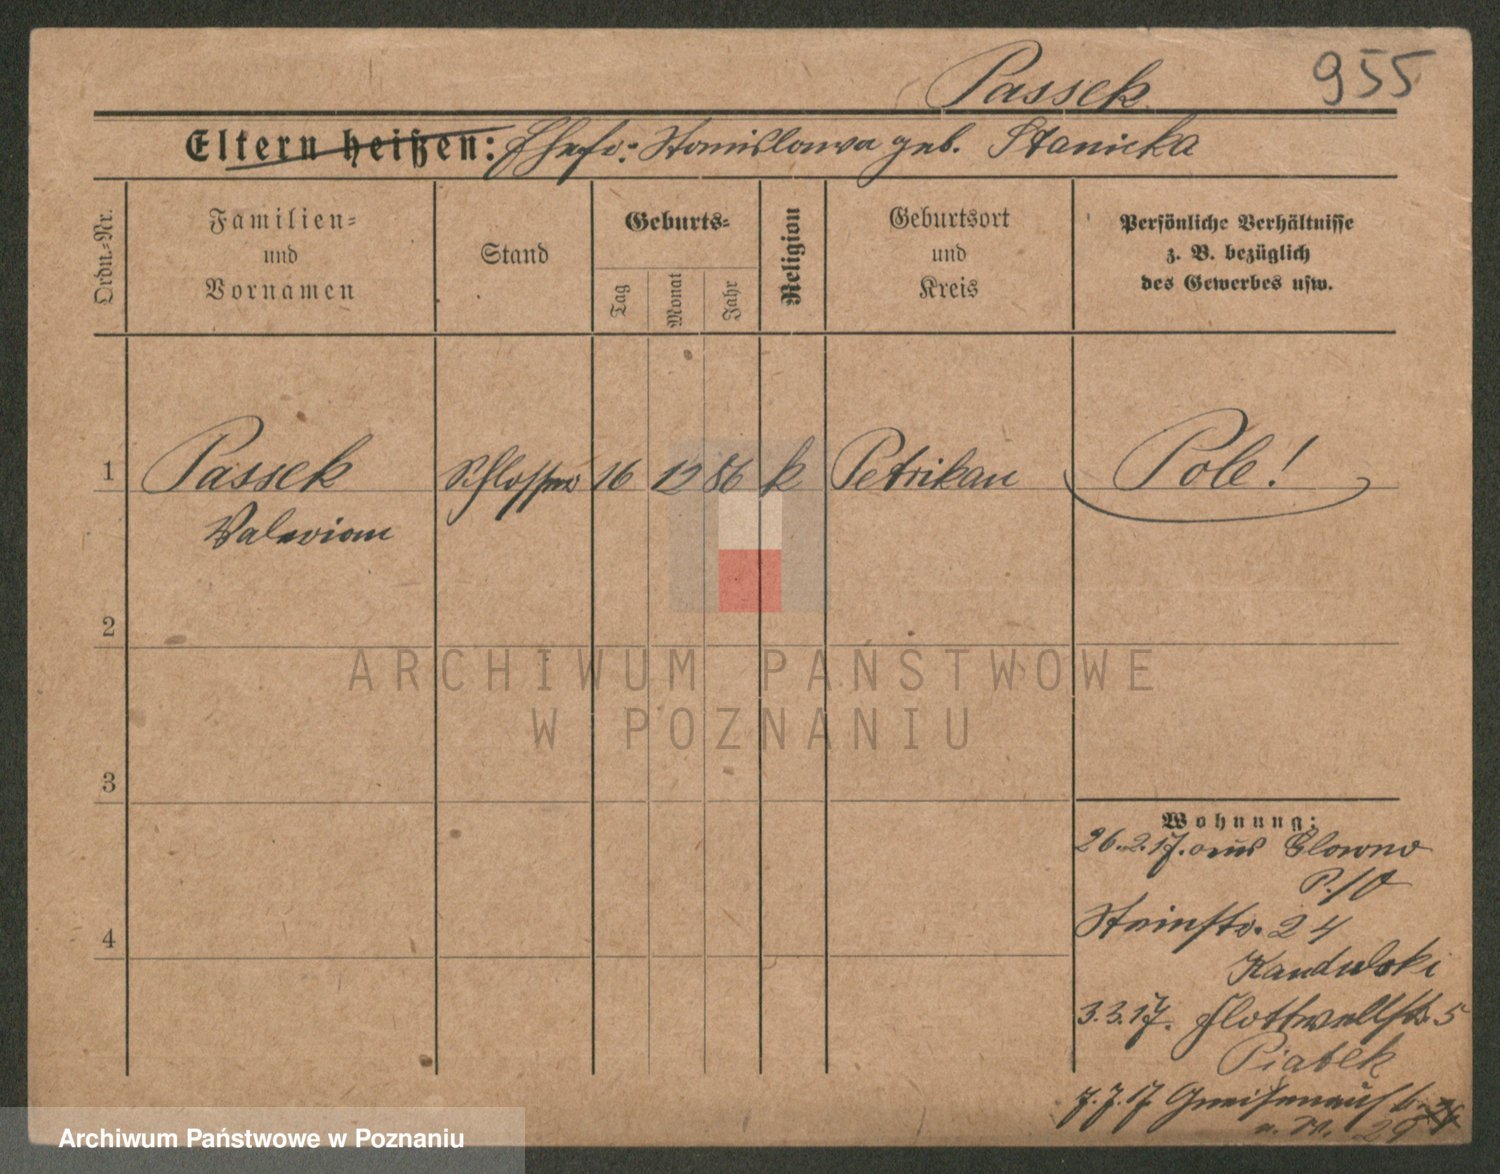 Passek
955
Eltern heißen: Ehefr: Stanislawa geb. Stanicka
Ordn.-Nr.
Familien- und Vornamen
Stand
Geburts-
Tag
Monat
Jahr
Religion
Geburtsort und Kreis
Persönliche Verhältnisse
z. B. bezüglich
des Gewerbes usw.
1 Passek Schlosser 16 12 86 k Petrikau Pole!
Valerian
2
ARCHIWUM PAŃSTWOWE
W POZNANIU
3
Wohnung:
26.2.17. aus Glowno
P. 10
4
Steinstr. 24
Kandulski
3.3.17. Flottwellstr. 5
Piatek
7.7.17 Gneisenaustr.
29
Archiwum Państwowe w Poznaniu